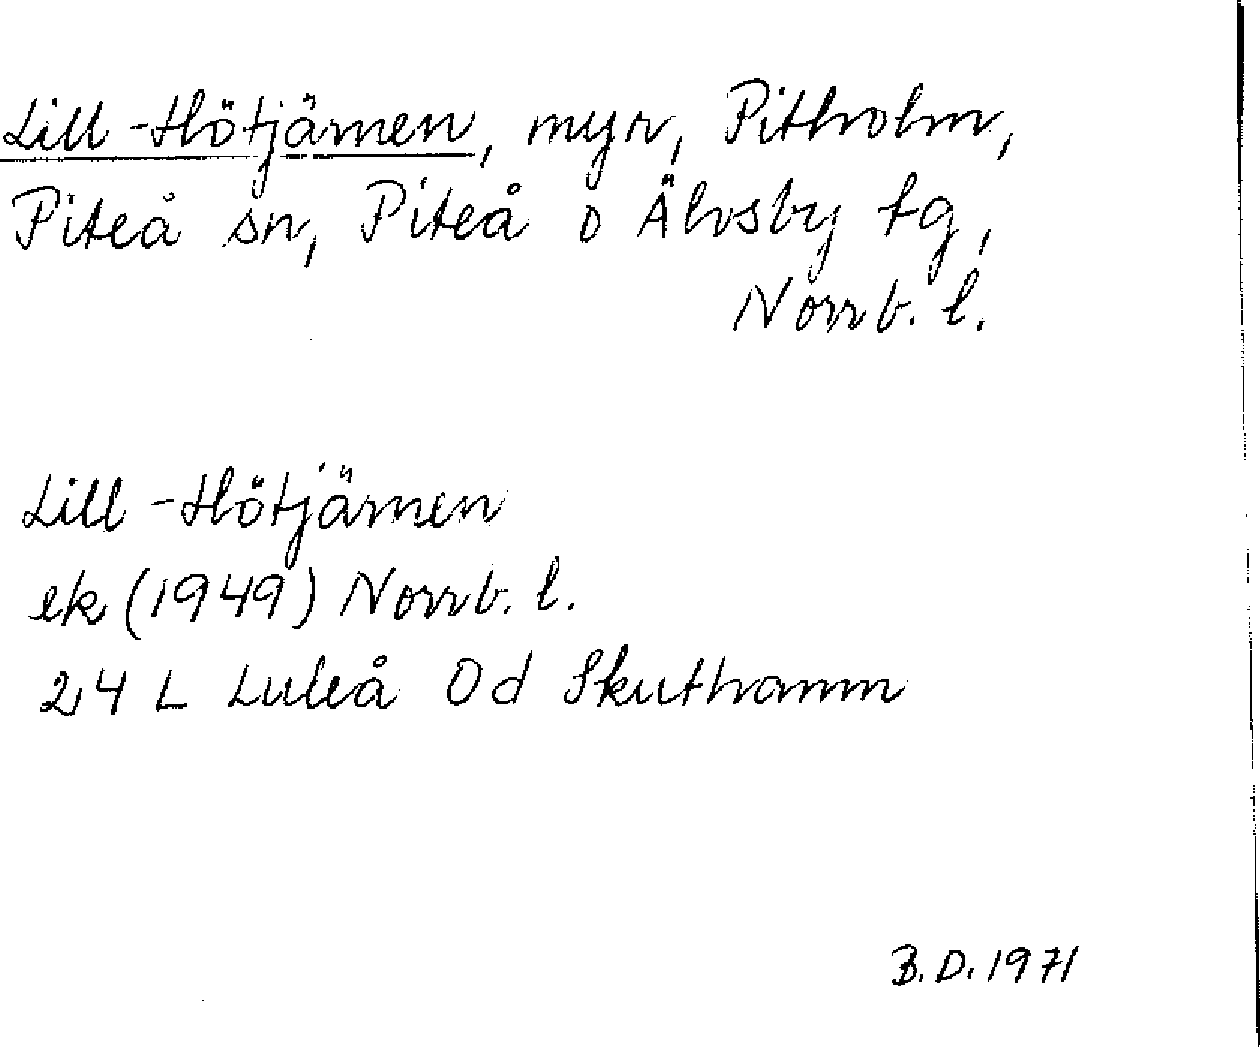 Lill-Hötjärnen, myr, Pitholm,
Piteå sn, Piteå o Älvsby tg,
Norrb. l.
Lill-Hötjärnen
ek (1949) Norrb. l.
24 L Luleå Od Skuthamn
B.D. 1971